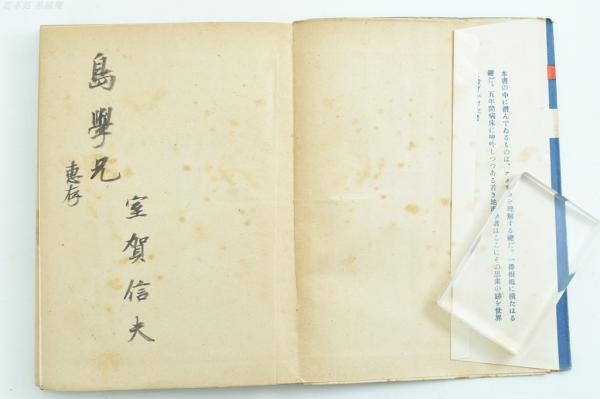 島學兄
惠存
室賀信夫
本書の中に潛んでゐるものは、アメリカを理解する鍵だ。一番根柢に横たはる
鍵だ。五年間病床に呻吟しつつある若き地理學者はここにその思索の跡を世界